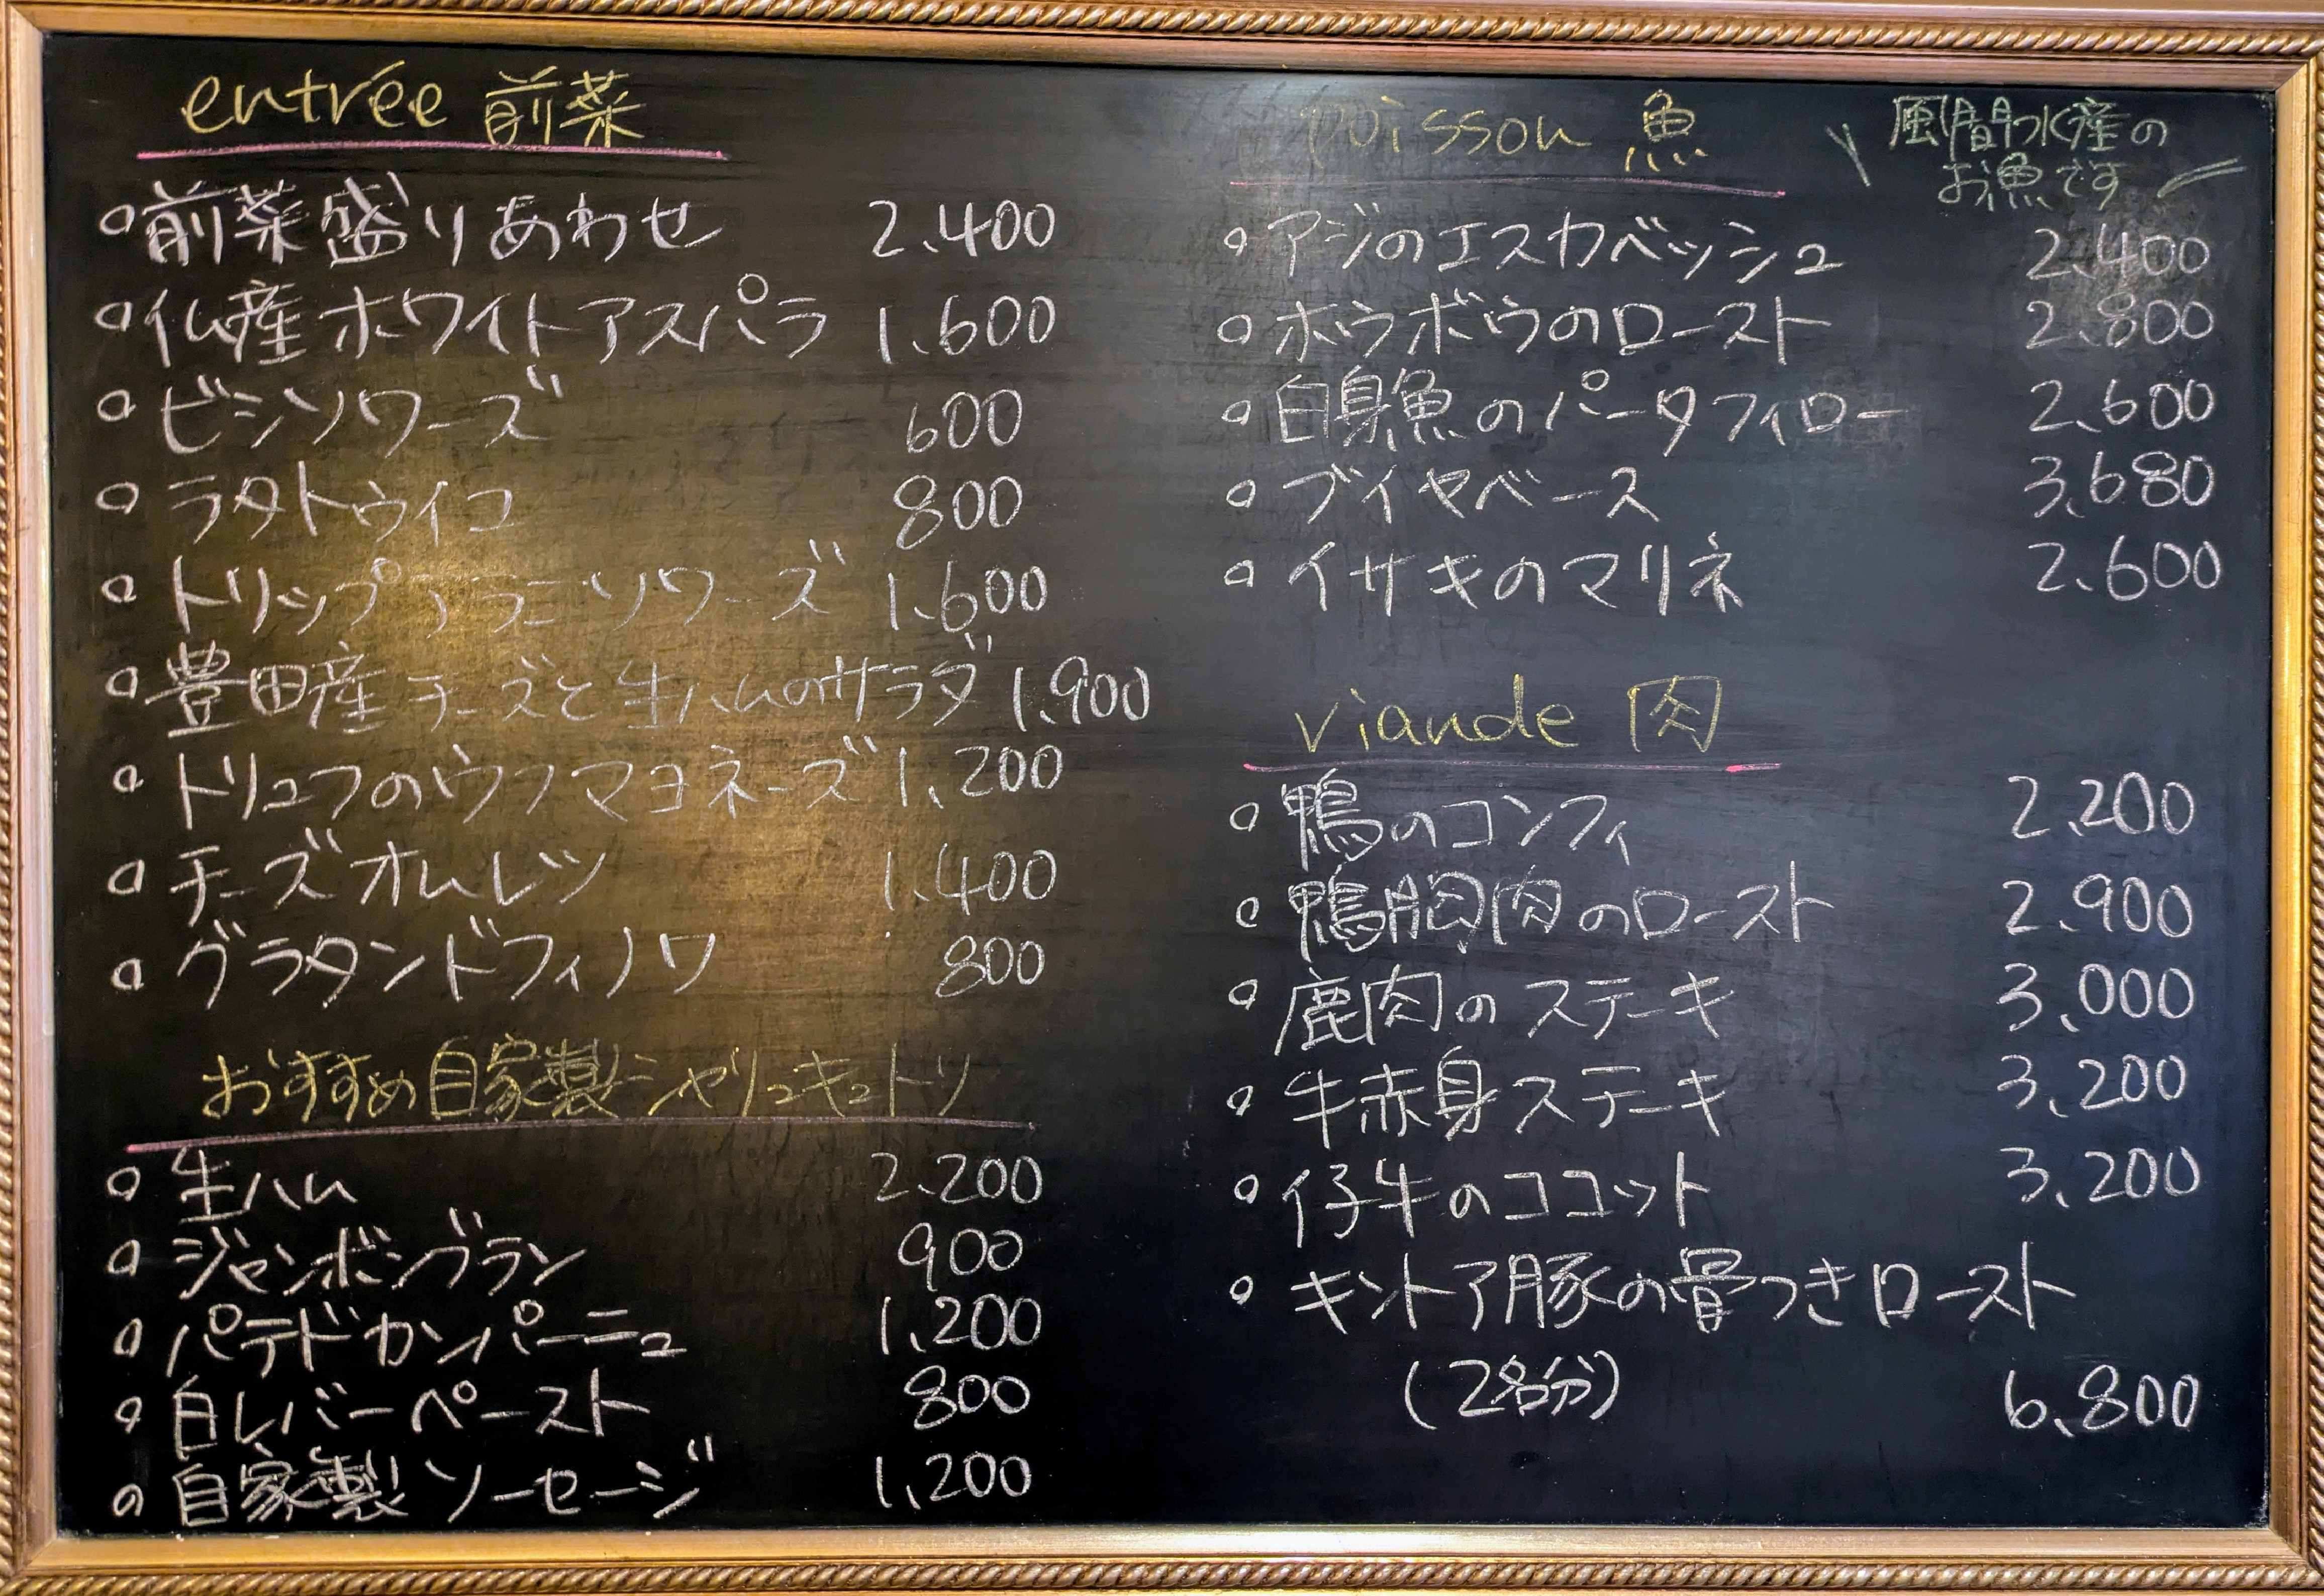 entrée 前菜
○前菜盛りあわせ 2.400
○仏産ホワイトアスパラ 1.600
○ビシソワーズ 600
○ラタトゥイユ 800
○トリップ ニソワーズ 1.600
○豊田産チーズと生ハムのサラダ 1.900
○トリュフのウフマヨネーズ 1,200
○チーズオムレツ 1.400
○グラタンドフィノワ 800
おすすめ自家製シャリュキュトリ
○生ハム 2.200
○ジャンボンブラン 900
○パテドカンパーニュ 1,200
○白レバーペースト 800
○自家製ソーセージ 1,200
poisson 魚
風間水産の
お魚です
○アジのエスカベッシュ 2.400
○ホウボウのロースト 2.800
○白身魚のパータフィロー 2.600
○ブイヤベース 3.680
○イサキのマリネ 2.600
viande 肉
○鴨のコンフィ 2.200
○鴨胸肉のロースト 2.900
○鹿肉のステーキ 3.000
○牛赤身ステーキ 3.200
○仔牛のココット 3.200
○キントア豚の骨つきロースト
(2名分) 6.800